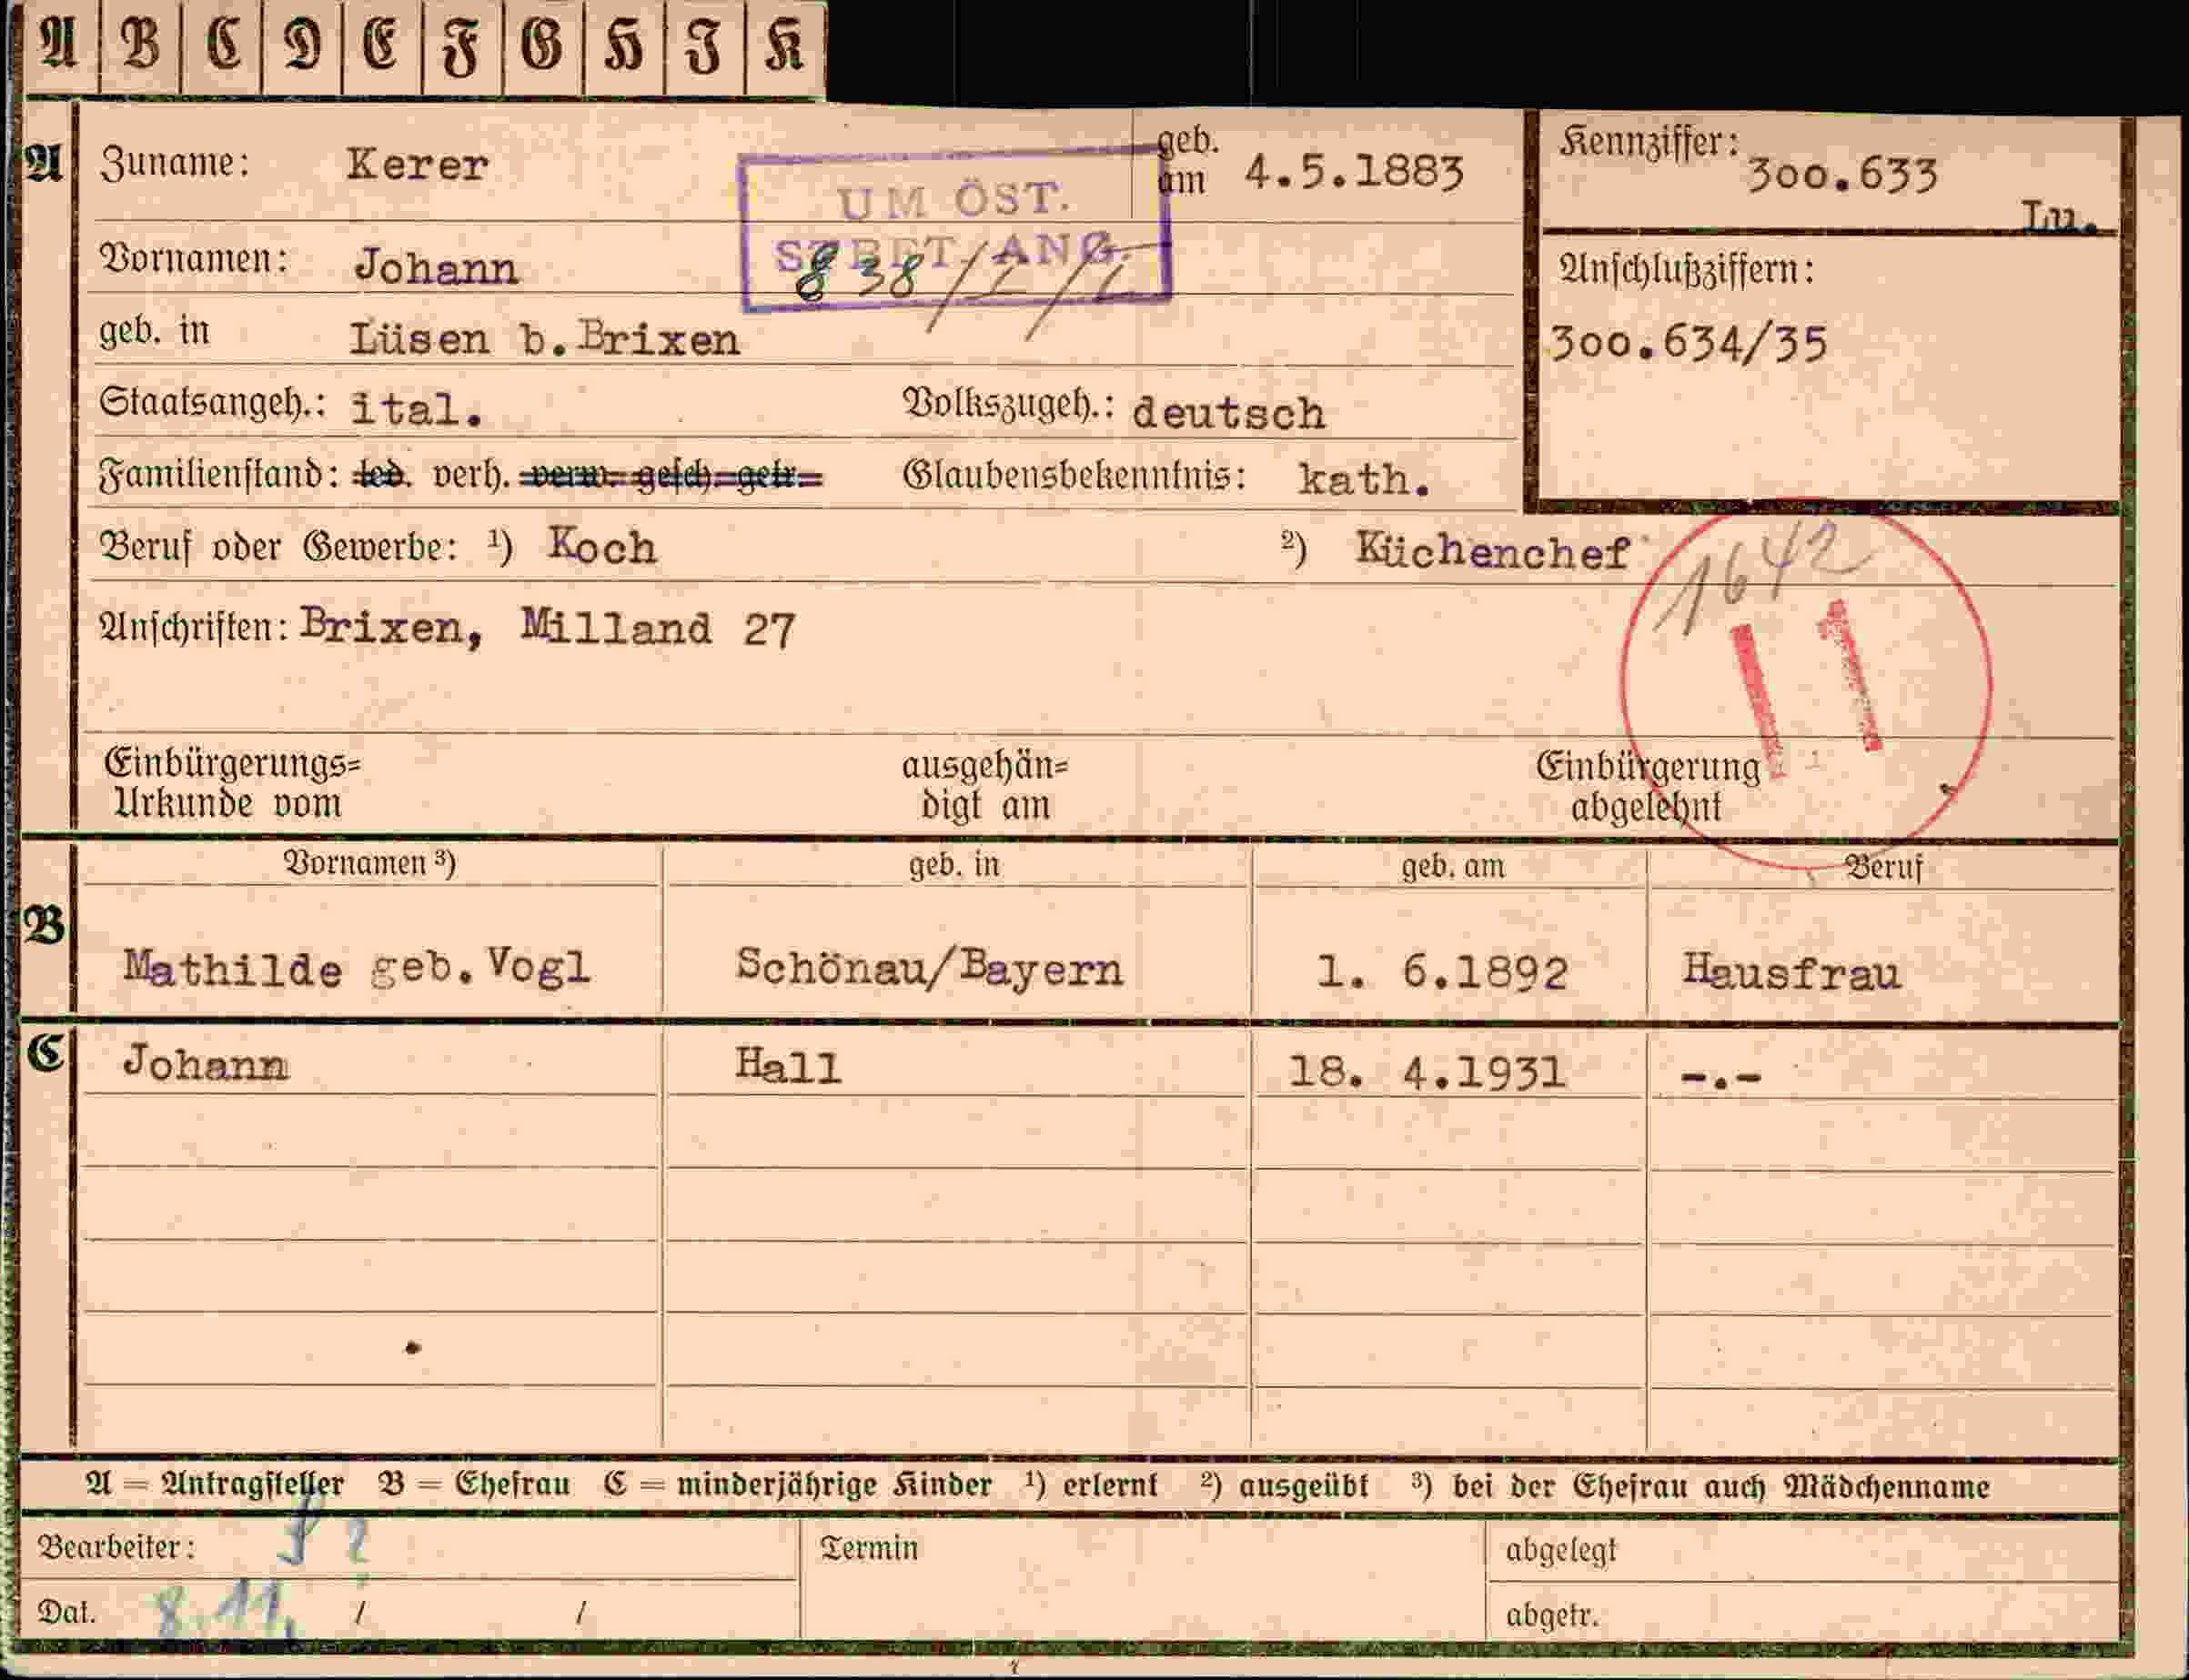 A B C D E F G H I K
A Zuname: Kerer geb. am 4.5.1883
Kennziffer: 300.633
Lu.
UM ÖST.
ST.BET.ANG.
838/1/1
Vornamen: Johann
Anschlußziffern:
300.634/35
geb. in Lüsen b.Brixen
Staatsangeh.: ital. Volkszugeh.: deutsch
Familienstand: led. verh. verw. gesch. getr. Glaubensbekenntnis: kath.
Beruf oder Gewerbe: ¹) Koch ²) Küchenchef
1642
11
Anschriften: Brixen, Milland 27
Einbürgerungs= ausgehän= Einbürgerung
Urkunde vom digt am abgelehnt
Vornamen ³) geb. in geb. am Beruf
B Mathilde geb.Vogl Schönau/Bayern 1. 6.1892 Hausfrau
C Johann Hall 18. 4.1931 -.-
A = Antragsteller B = Ehefrau C = minderjährige Kinder ¹) erlernt ²) ausgeübt ³) bei der Ehefrau auch Mädchenname
Bearbeiter: Termin abgelegt
Dat. 8.11. / / abgetr.